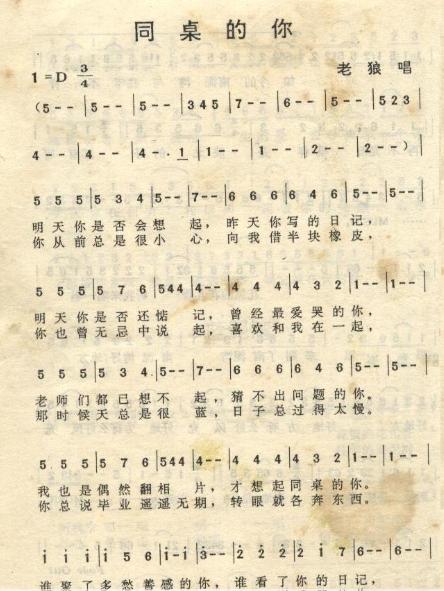 同桌的你
1=D 3/4
老狼 唱
(5-- | 5-- | 5-- | 345 | 7-- | 6-- | 5-- | 523
4-- | 4-- | 4-·1 | 1-- | 1-- | 2-- | 2--)|
5 5 5 | 5 3 4 | 5-- | 7-- | 6 6 6 | 6 4 6 | 5-- | 5--|
明天你是否会想 起，昨天你写的日记，
你从前总是很小 心，向我借半块橡皮，
5 5 5 | 5 7 6 | 544 | 4-- | 4 4 4 | 4 3 2 | 1-- | 1--|
明天你是否还惦 记，曾经最爱哭的你，
你也曾无忌中说 起，喜欢和我在一起，
5 5 5 | 5 3 4 | 5-- | 7-- | 6 6 6 | 6 4 6 | 5-- | 5--
老师们都已想不 起，猜不出问题的你。
那时候天总是很 蓝，日子总过得太慢。
5 5 5 | 5 7 6 | 544 | 4-- | 4 4 4 | 4 3 2 | 1-- | 1--
我也是偶然翻相 片，才想起同桌的你。
你总说毕业遥遥无期，转眼就各奔东西。
i i i | i 5 6 | i-i | 3-- | 2 2 2 | 2 i 7 | 6-- | 6--|
谁娶了多愁善感的你，谁看了你的日记，